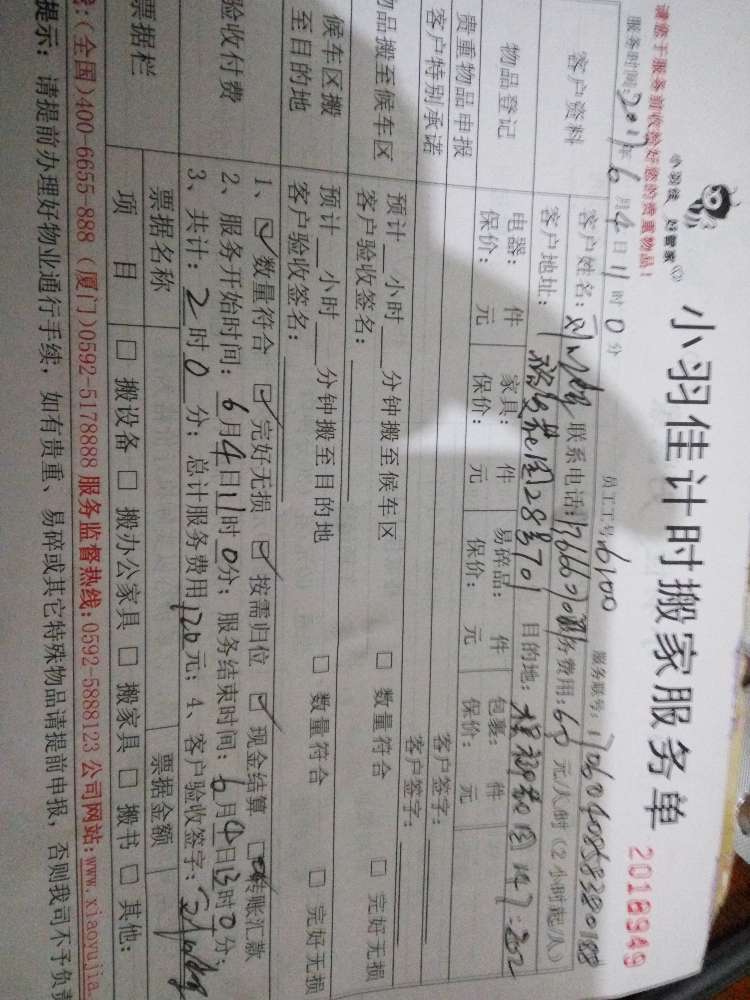 小羽佳 好管家
小羽佳计时搬家服务单
2018949
请您于服务前收拾好您的贵重物品!
服务时间:2017年6月4日11时0分 员工工号:6100 服务联号:
客户资料
客户姓名: 联系电话: 服务费用:60元/人/时(2小时起/人)
客户地址: 目的地:
物品登记
电器: 件 家具: 件 易碎品: 件 包裹: 件
保价: 元 保价: 元 保价: 元 保价: 元
贵重物品申报 客户签字:
客户特别承诺 客户签字:
物品搬至候车区
预计 小时 分钟搬至候车区 □ 数量符合 □ 完好无损
客户验收签名:
候车区搬至目的地
预计 小时 分钟搬至目的地 □ 数量符合 □ 完好无损
客户验收签名:
验收付费
1、☑数量符合 ☑完好无损 ☑按需归位 ☑现金结算 □转账汇款
2、服务开始时间:6月4日11时0分;服务结束时间:6月4日13时0分;
3、共计:2时0分;总计服务费用120元;4、客户验收签字:
票据栏
票据名称 票据金额
项目 □ 搬设备 □ 搬办公家具 □ 搬家具 □ 搬书 □ 其他:
:(全国)400-6655-888 (厦门)0592-5178888 服务监督热线:0592-5888123 公司网站:www.xiaoyujia.
提示: 请提前办理好物业通行手续,如有贵重、易碎或其它特殊物品请提前申报,否则我司不予负责